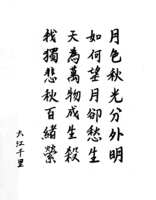 月色秋光分外明
如何望月卻愁生
天為萬物成生殺
我獨悲秋百緒縈
大江千里